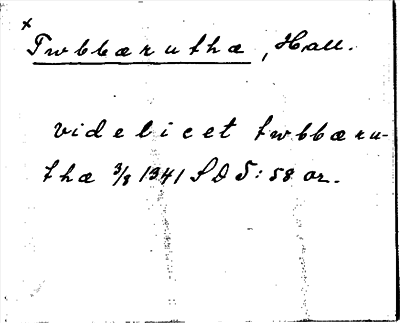 x
Twbbæruthæ, Hall.
videlicet twbbæru-
thæ 3/8 1341 SD 5:58 or.